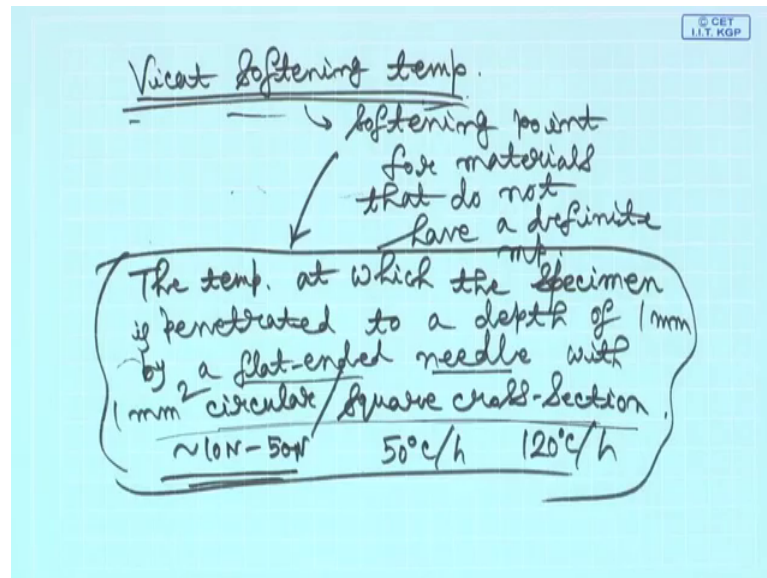 © CET
I.I.T. KGP
Vicat Softening temp.
↳ Softening point
for materials
that do not
have a definite
mp.
The temp. at which the specimen
is penetrated to a depth of 1 mm
by a flat-ended needle with
1 mm² circular/square cross-section.
~10N-50N 50°C/h 120°C/h